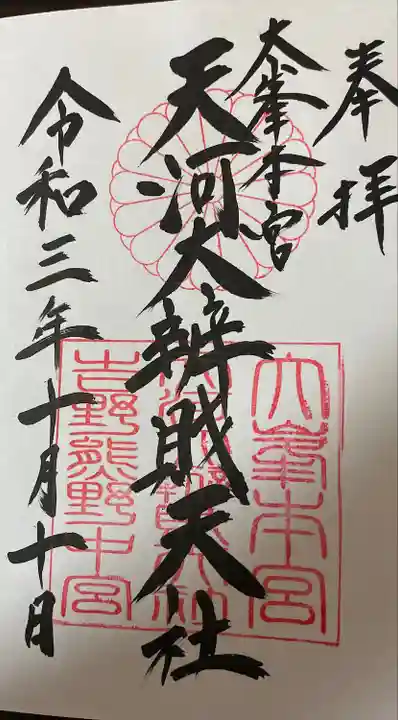 奉拝
大峯本宮
天河大辨財天社
令和三年十月十日
大峯本宮
吉野熊野中宮